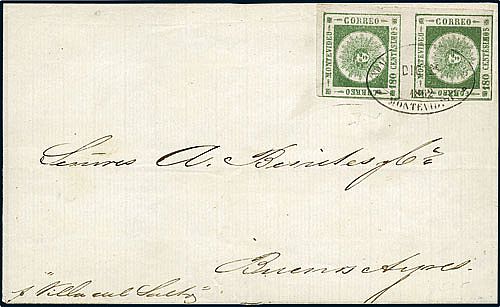 CORREO CORREO
MONTEVIDEO 180 CENTÉSIMOS MONTEVIDEO 180 CENTÉSIMOS
CORREO CORREO
DIC
MONTEVIDEO
Señores A. Benites y Cª
Buenos Ayres.
p "Villa del Salto"